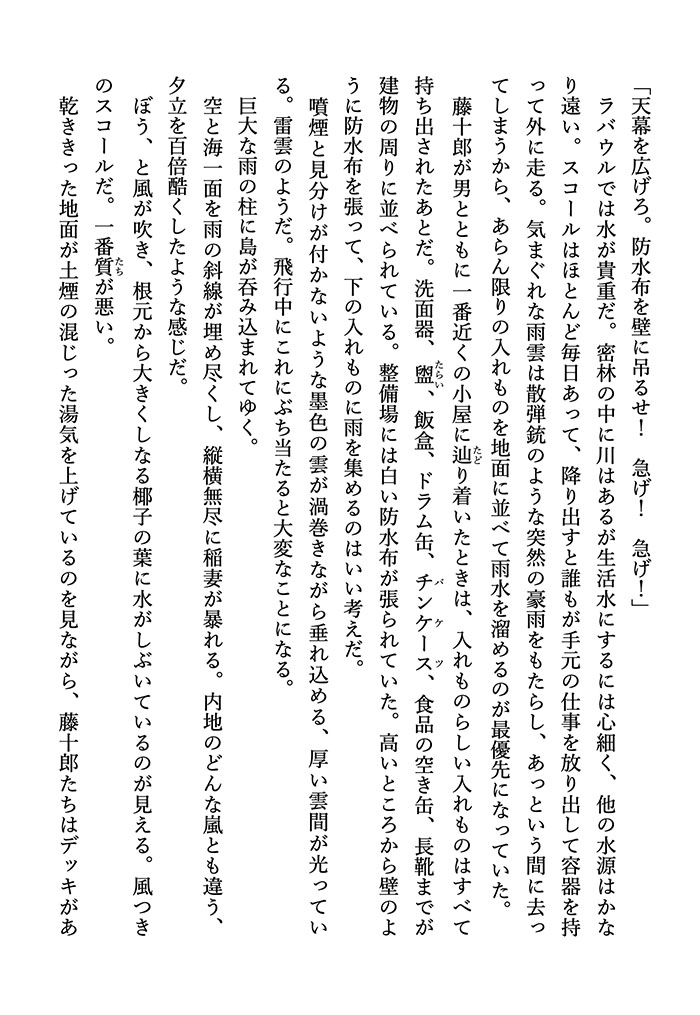 「天幕を広げろ。防水布を壁に吊るせ！　急げ！　急げ！」
　ラバウルでは水が貴重だ。密林の中に川はあるが生活水にするには心細く、他の水源はかな
り遠い。スコールはほとんど毎日あって、降り出すと誰もが手元の仕事を放り出して容器を持
って外に走る。気まぐれな雨雲は散弾銃のような突然の豪雨をもたらし、あっという間に去っ
てしまうから、あらん限りの入れものを地面に並べて雨水を溜めるのが最優先になっていた。
　藤十郎が男とともに一番近くの小屋に辿り着いたときは、入れものらしい入れものはすべて
持ち出されたあとだ。洗面器、盥、飯盒、ドラム缶、チンケース、食品の空き缶、長靴までが
建物の周りに並べられている。整備場には白い防水布が張られていた。高いところから壁のよ
うに防水布を張って、下の入れものに雨を集めるのはいい考えだ。
　噴煙と見分けが付かないような墨色の雲が渦巻きながら垂れ込める、厚い雲間が光ってい
る。雷雲のようだ。飛行中にこれにぶち当たると大変なことになる。
　巨大な雨の柱に島が呑み込まれてゆく。
　空と海一面を雨の斜線が埋め尽くし、縦横無尽に稲妻が暴れる。内地のどんな嵐とも違う、
夕立を百倍酷くしたような感じだ。
　ぼう、と風が吹き、根元から大きくしなる椰子の葉に水がしぶいているのが見える。風つき
のスコールだ。一番質が悪い。
　乾ききった地面が土煙の混じった湯気を上げているのを見ながら、藤十郎たちはデッキがあ